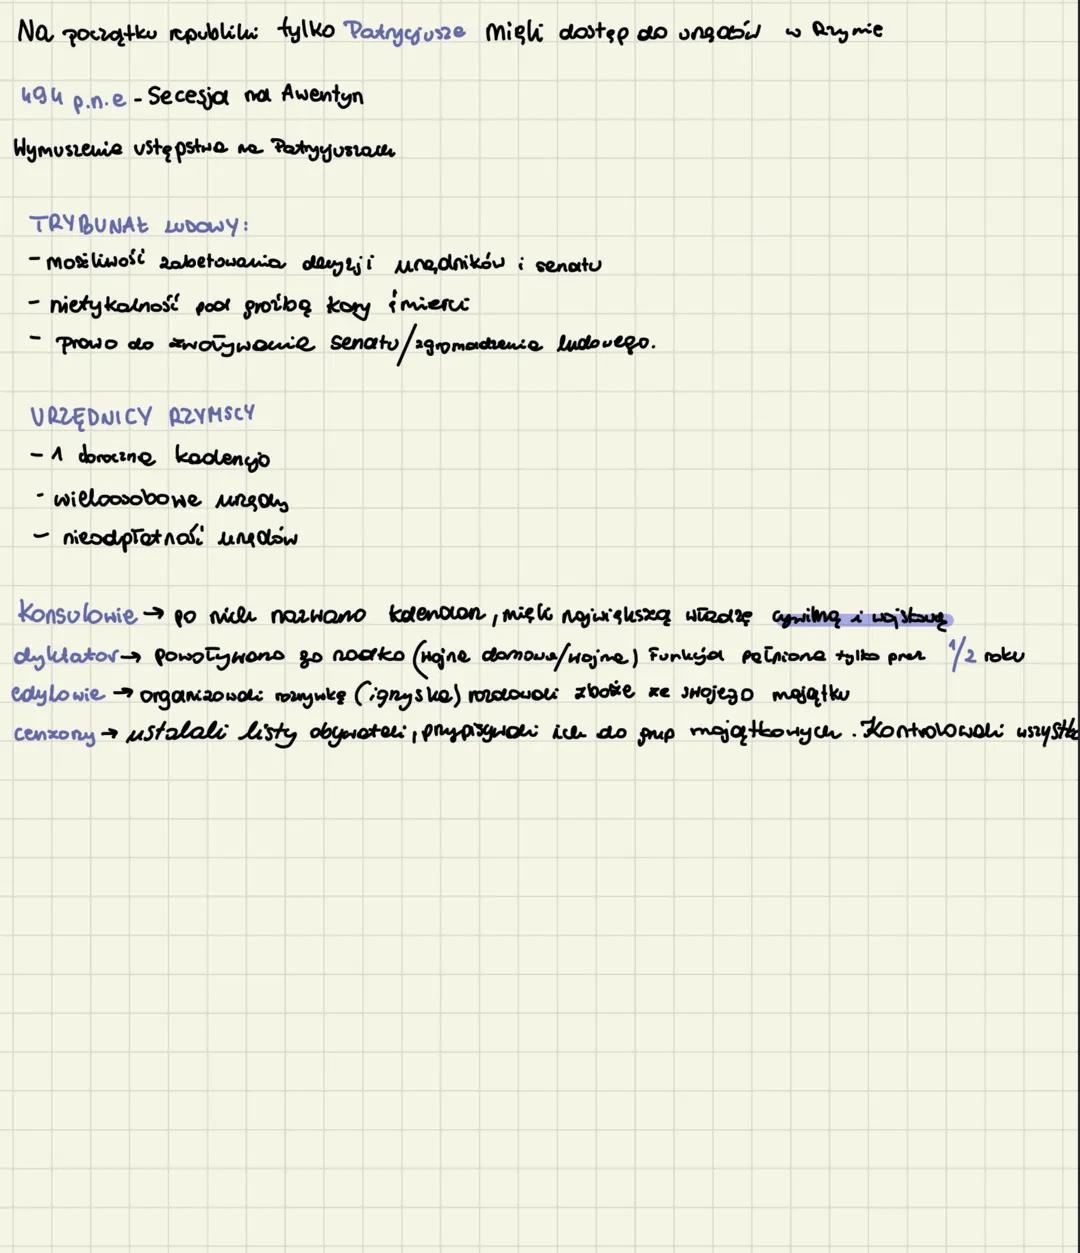 Na początku republiki tylko Patrycjusze mieli dostęp do urzędów w Rzymie
494 p.n.e - Secesja na Awentyn
Wymuszenie ustępstwa na Patrycjuszach
TRYBUNAŁ LUDOWY:
- możliwość zabetowania decyzji urzędników i senatu
- nietykalność pod groźbą kary śmierci
- prawo do zwoływania senatu/zgromadzenia ludowego.
URZĘDNICY RZYMSCY
- 1 doroczna kadencja
- wieloosobowe urzędy
- nieodpłatność urzędów
Konsulowie → po nich nazwano kalendarz, mieli największą władzę cywilną i wojskową
dyktator → powoływano go rzadko (wojna domowa/wojna) Funkcja pełniona tylko przez 1/2 roku
edylowie → organizowali rozrywkę (igryska) rozdawali zboże ze swojego majątku
cenzorzy → ustalali listy obywateli, przypisywali ich do grup majątkowych. Kontrolowali wszystk